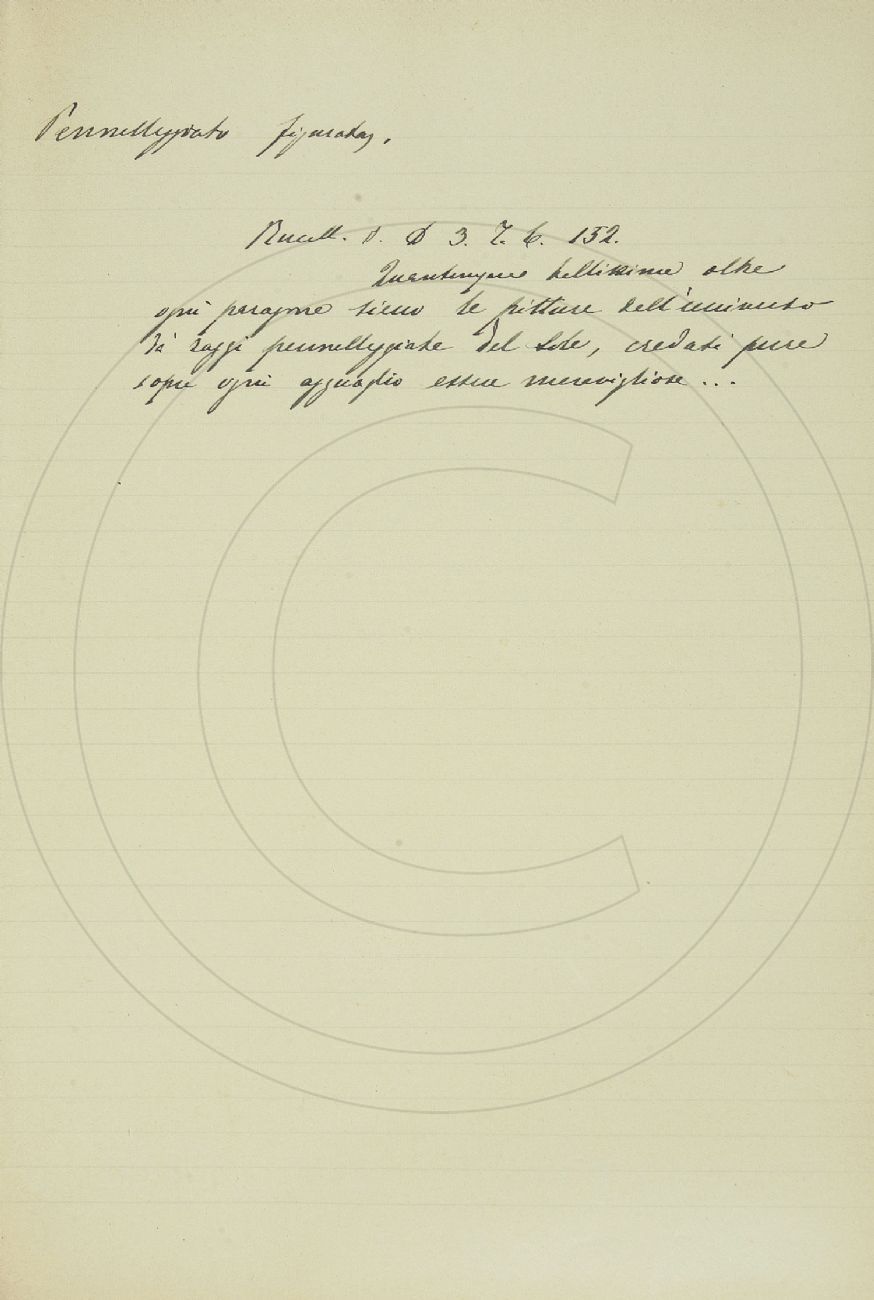 Pennelleggiato figuratas.
Rucell. S. D 3. 7. 6. 152.
Quantunque bellissime oltre
ogni paragone sieno le pitture dell'universo
da' raggi pennelleggiate del Sole, credasi pure
sopra ogni agguaglio essere meravigliose ...